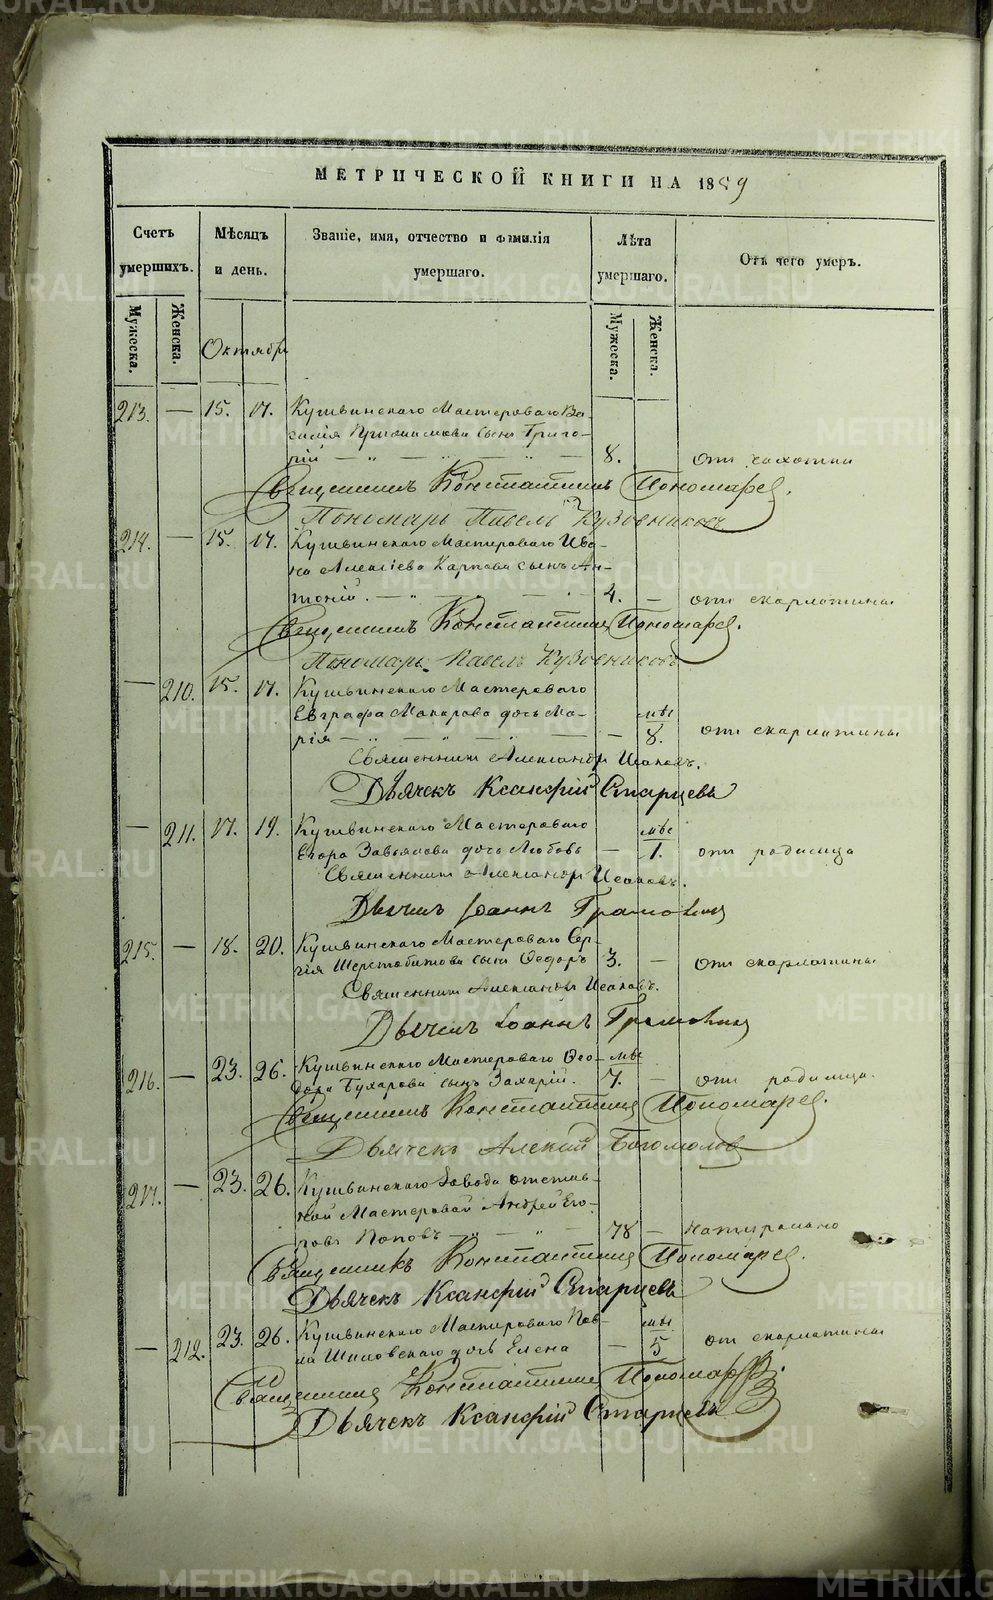 МЕТРИЧЕСКОЙ КНИГИ НА 1859
Счетъ умершихъ.
Мѣсяцъ и день.
Званіе, имя, отчество и фамилія умершаго.
Лѣта умершаго.
Отъ чего умеръ.
Мужеска.
Женска.
Октябрь
Мужеска.
Женска.
213. — 15. 17. Кушвинскаго Мастероваго Ва-
силія сынъ Григо-
рій — „ — „ — „ — 8. отъ чахотки
Священникъ Константинъ Пономаревъ.
Пономарь Павелъ Кузовниковъ
214. — 15. 17. Кушвинскаго Мастероваго Ива-
на Алексіева Карпова сынъ Ан-
тоній. — „ — „ — 4. — отъ скарлатины
Священникъ Константинъ Пономаревъ.
Пономарь Павелъ Кузовниковъ
— 210. 15. 17. Кушвинскаго Мастероваго
Евграфа Макарова дочь Ма- мѣс
рія — „ — „ — „ — — 8. отъ скарлатины
Священникъ Александръ Исаковъ.
Дьячекъ Ксанфій Старцевъ
— 211. 17. 19. Кушвинскаго Мастероваго мѣс
Егора Завьялова дочь Любовь — 1. отъ родимца
Священникъ Александръ Исаковъ.
Дьячекъ Іоаннъ Грамолинъ
215. — 18. 20. Кушвинскаго Мастероваго Сер-
гія Шерстобитова сынъ Ѳедоръ 3. — отъ скарлатины
Священникъ Александръ Исаковъ.
Дьячекъ Іоаннъ Грамолинъ
216. — 23. 26. Кушвинскаго Мастероваго Ѳео- мѣс
дора Бухарова сынъ Захарій. 7. — отъ родимца.
Священникъ Константинъ Пономаревъ.
Дьячекъ Алексій Богомоловъ
217. — 23. 26. Кушвинскаго Завода отстав-
ной Мастеровой Андрей Его-
ровъ Поповъ — „ — „ — 78 — натурально
Священникъ Константинъ Пономаревъ.
Дьячекъ Ксанфій Старцевъ
— 212. 23. 26. Кушвинскаго Мастероваго Пав- мѣс
ла Шиловскаго дочь Елена — 5 от скарлатины
Священникъ Константинъ Пономаревъ.
Дьячекъ Ксанфій Старцевъ
METRIKI.GASO-URAL.RU